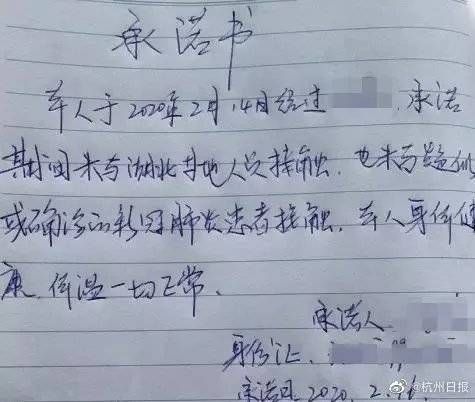 承诺书
本人于2020年2月14日经过 承诺
其期间未与湖北等地人员接触,也未与疑似
或确诊的新冠肺炎患者接触,本人身体健
康,体温一切正常.
承诺人
身份证
承诺日 2020.2.16.
@杭州日报